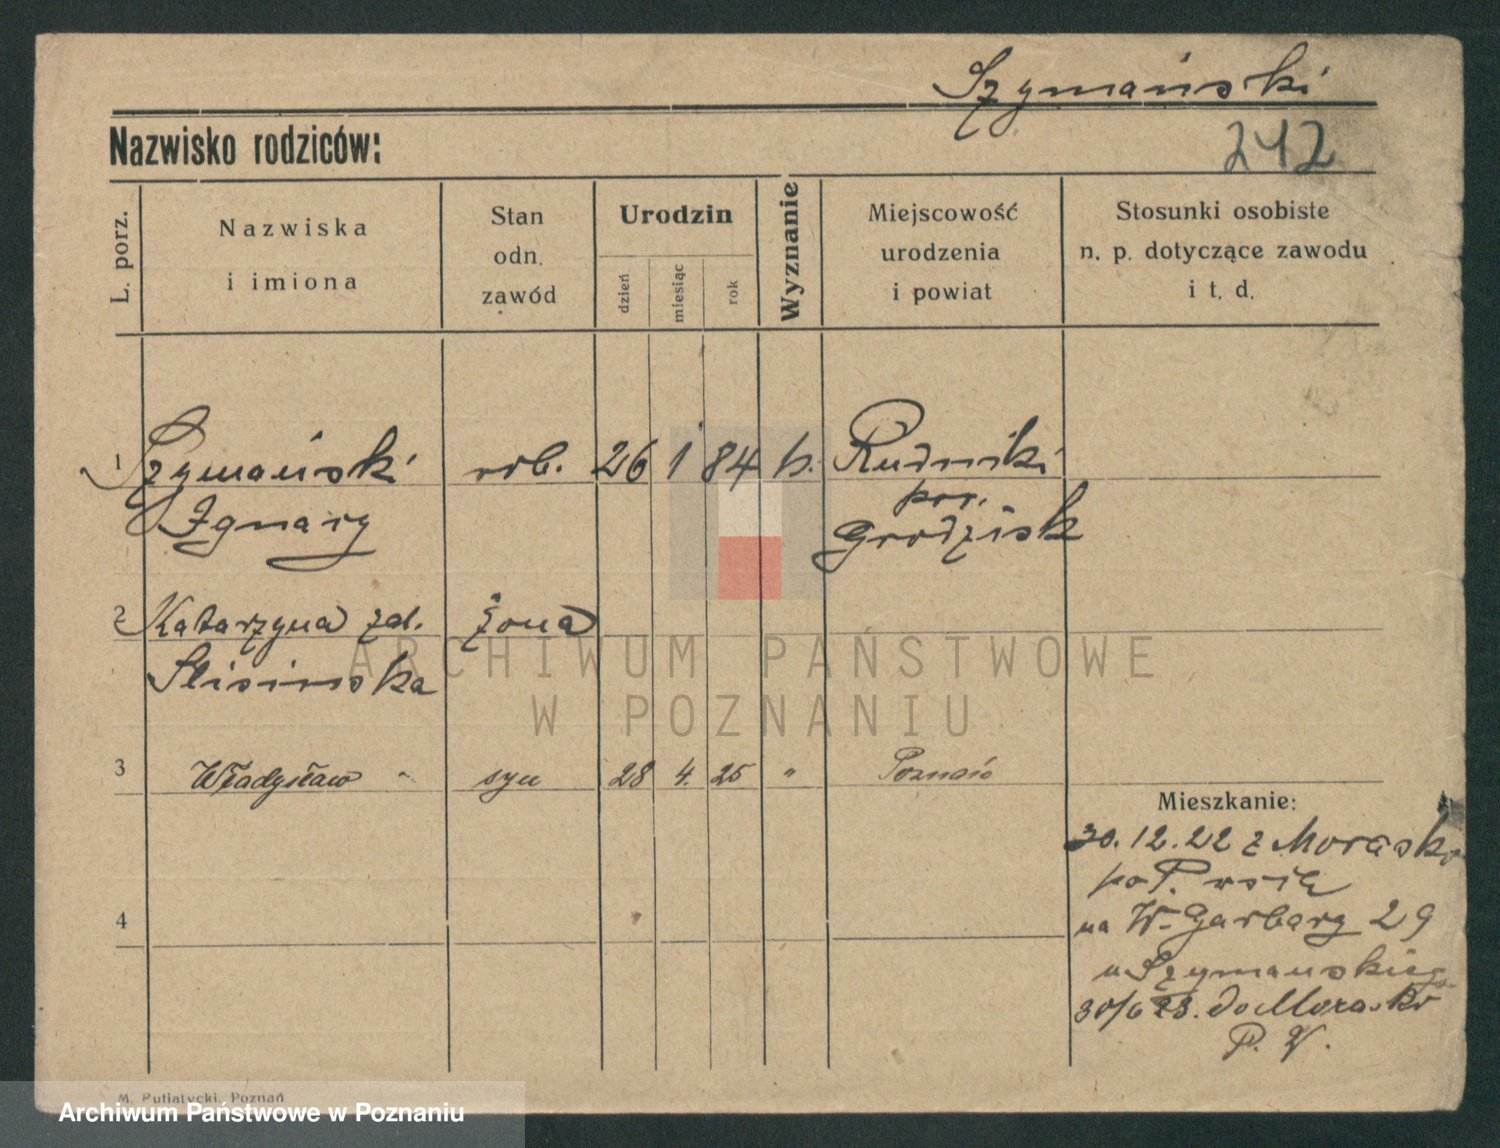 Szymański
Nazwisko rodziców:
242
L. porz.
Nazwiska
i imiona
Stan
odn.
zawód
Urodzin
dzień
miesiąc
rok
Wyznanie
Miejscowość
urodzenia
i powiat
Stosunki osobiste
n. p. dotyczące zawodu
i t. d.
1 Szymański rob. 26 1 84 k. Rudniki
Ignacy
pow.
Grodzisk
2 Katarzyna zd. żona
3 Władysław syn 28 4. 25 " Poznań
4
Mieszkanie:
30.12.22 z Morasko
po P.
na W. Garbary 29
u Szymańskiego
30/6 23. do Morasko
P. W.
M. Putiatycki, Poznań
ARCHIWUM PAŃSTWOWE
W POZNANIU
Archiwum Państwowe w Poznaniu